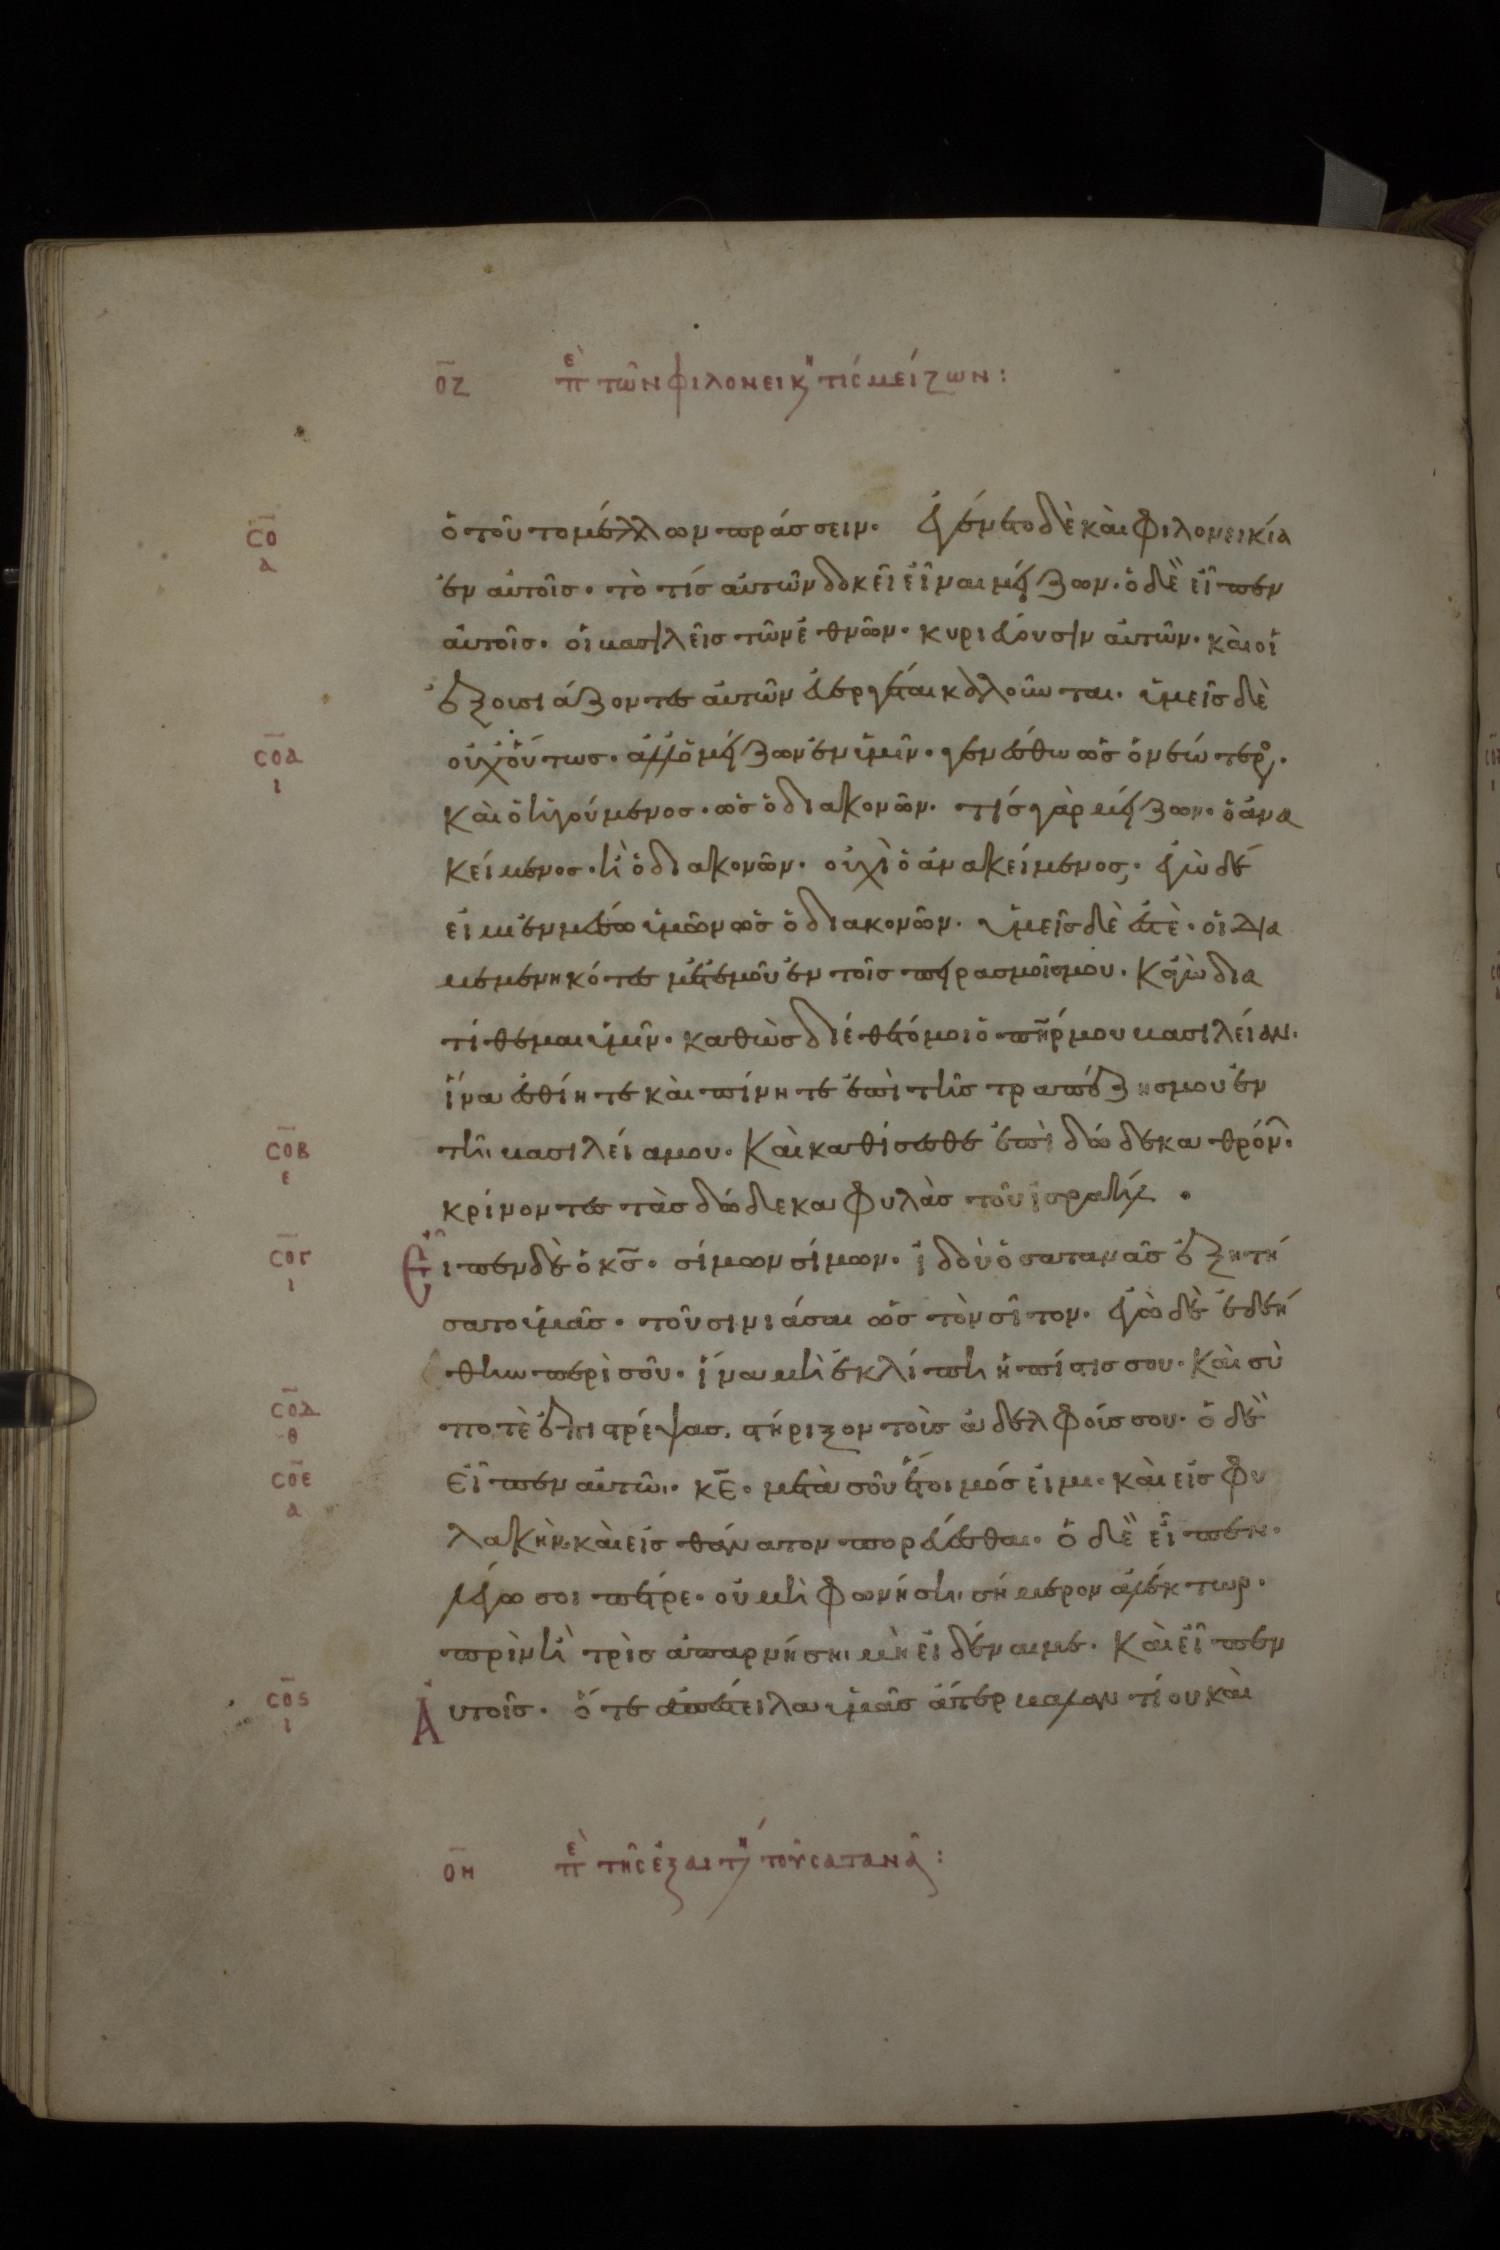 ο̅ζ̅ πε τῶν φιλονεικη τίς μείζων:
ὁ τοῦτο μέλλων πράσσειν. ἐγένετο δὲ καὶ φιλονεικία
σ̅ο̅
α
ἐν αὐτοῖς. τὸ τίς αὐτῶν δοκεῖ εἶναι μείζων. ὁ δὲ εἶπεν
αὐτοῖς. οἱ βασιλεῖς τῶν ἐθνῶν. κυριεύουσιν αὐτῶν. καὶ οἱ
ἐξουσιάζοντες αὐτῶν εὐεργέται καλοῦνται. ὑμεῖς δὲ
σ̅ο̅α̅
ι
οὐχ οὕτως. ἀλλ' ὁ μείζων ἐν ὑμῖν. γενέσθω ὡς ὁ νεώτερος.
καὶ ὁ ἡγούμενος. ὡς ὁ διακονῶν. τίς γὰρ μείζων. ὁ ἀνα
κείμενος. ἢ ὁ διακονῶν. οὐχὶ ὁ ἀνακείμενος; ἐγὼ δέ
εἰμι ἐν μέσω ὑμῶν ὡς ὁ διακονῶν. ὑμεῖς δὲ ἐστὲ. οἱ δια
μεμενηκότες μετ' ἐμοῦ ἐν τοῖς πειρασμοῖς μου. Κἀγὼ δια
τίθεμαι ὑμῖν. καθὼς διέθετό μοι ὁ π̅η̅ρ̅ μου βασιλείαν.
ἵνα ἐσθίητε καὶ πίνητε ἐπὶ τῆς τραπέζης μου ἐν
σ̅ο̅β̅
ε
τῆι βασιλεία μου. Καὶ καθίσεσθε ἐπὶ δώδεκα θρόν.
κρίνοντες τὰς δώδεκα φυλὰς τοῦ ἰσραήλ.
σ̅ο̅γ̅
ι
Εἶπεν δὲ ὁ κ̅ς̅. σίμων σίμων. ἰδοὺ ὁ σατανᾶς ἐξητή
σατο ὑμᾶς. τοῦ σινιάσαι ὡς τὸν σῖτον. ἐγὼ δὲ ἐδεή
θην περὶ σοῦ. ἵνα μὴ ἐκλίπη ἡ πίστις σου. Καὶ σὺ
σ̅ο̅δ̅
θ
ποτὲ ἐπιστρέψας. στήριξον τοὶς ἀδελφοίς σου. ὁ δὲ
σ̅ο̅ε̅
α
εἶπεν αὐτῶι. κ̅ε̅. μετὰ σοῦ ἕτοιμός εἰμι. καὶ εἰς φυ
λακὴν. καὶ εἰς θάνατον πορεύεσθαι. ὁ δὲ εἶπεν.
λέγω σοι πέτρε. οὐ μὴ φωνήσηι σήμερον ἀλέκτωρ.
πρὶν ἢ τρὶς ἀπαρνήσηι μὴ εἰδέναι με. Καὶ εἶπεν
σ̅ο̅ς̅
ι
Αὐτοῖς. ὅτε ἀπέστειλα ὑμᾶς ἄτερ βαλαντίου καὶ
ο̅η̅ πε τῆς ἐξαιτη τοῦ σατανᾶ: